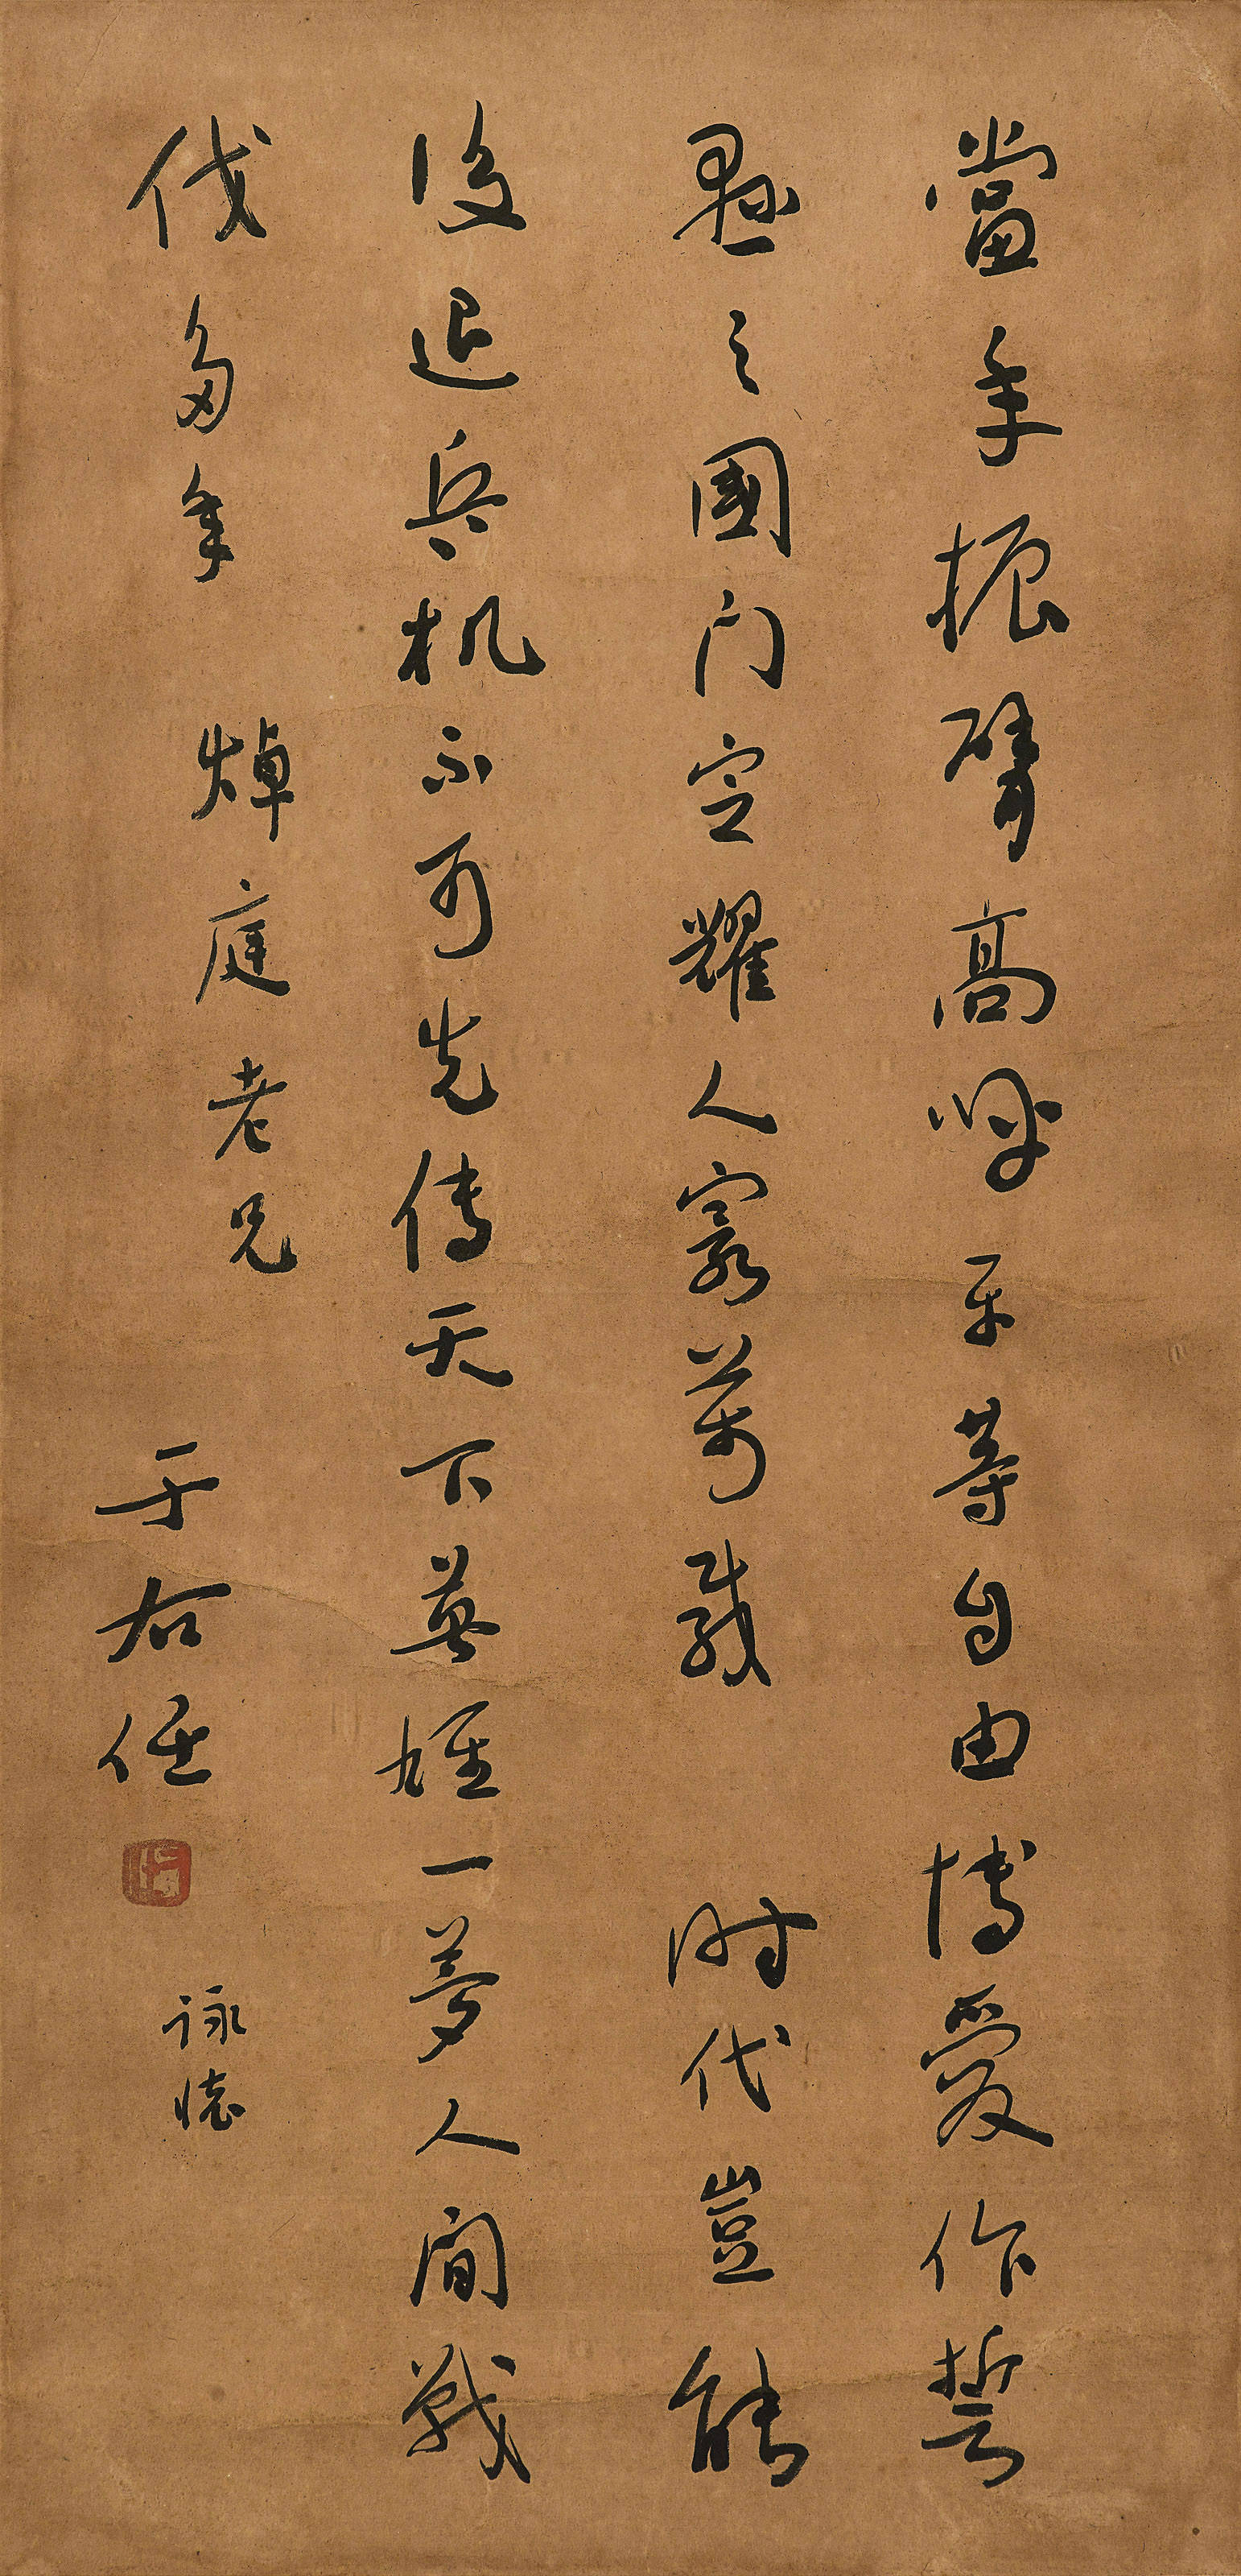 當年振臂高呼平等自由博愛作誓
懸之國门空耀人寰萬載 时代豈能
後退兵机不可先传天下英雄一夢人间戰
伐多年 焯庭老兄
于右任
詠懷